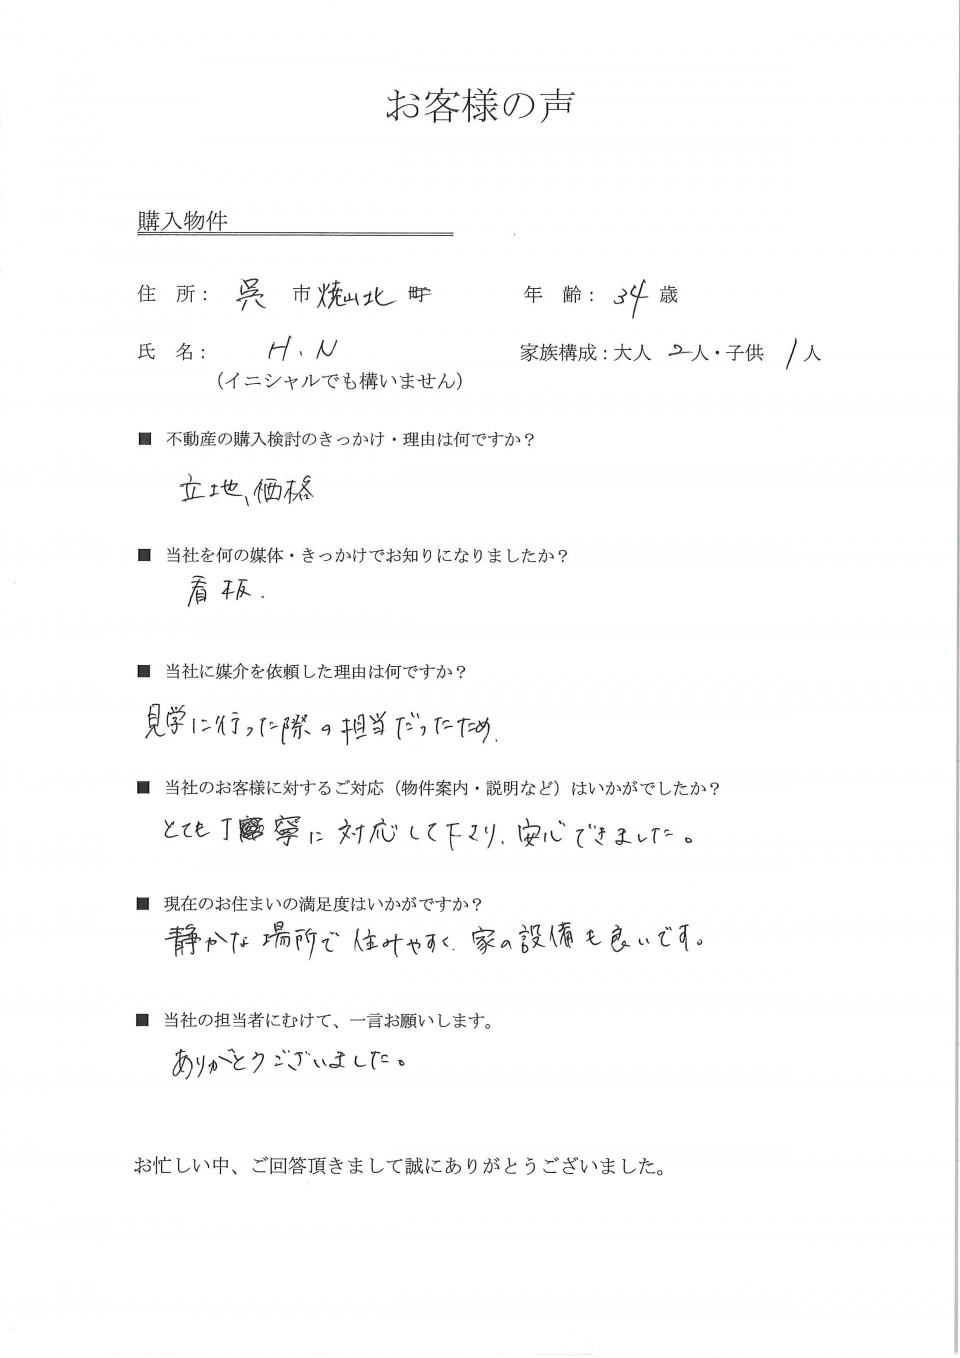 お客様の声
購入物件
住 所： 呉 市 焼山北 町 年 齢： 34 歳
氏 名： H.N 家族構成：大人 2人・子供 1人
（イニシャルでも構いません）
■ 不動産の購入検討のきっかけ・理由は何ですか？
立地、価格
■ 当社を何の媒体・きっかけでお知りになりましたか？
看板.
■ 当社に媒介を依頼した理由は何ですか？
見学に行った際の担当だったため.
■ 当社のお客様に対するご対応（物件案内・説明など）はいかがでしたか？
とても丁寧に対応して下さり、安心できました。
■ 現在のお住まいの満足度はいかがですか？
静かな場所で住みやすく、家の設備も良いです。
■ 当社の担当者にむけて、一言お願いします。
ありがとうございました。
お忙しい中、ご回答頂きまして誠にありがとうございました。